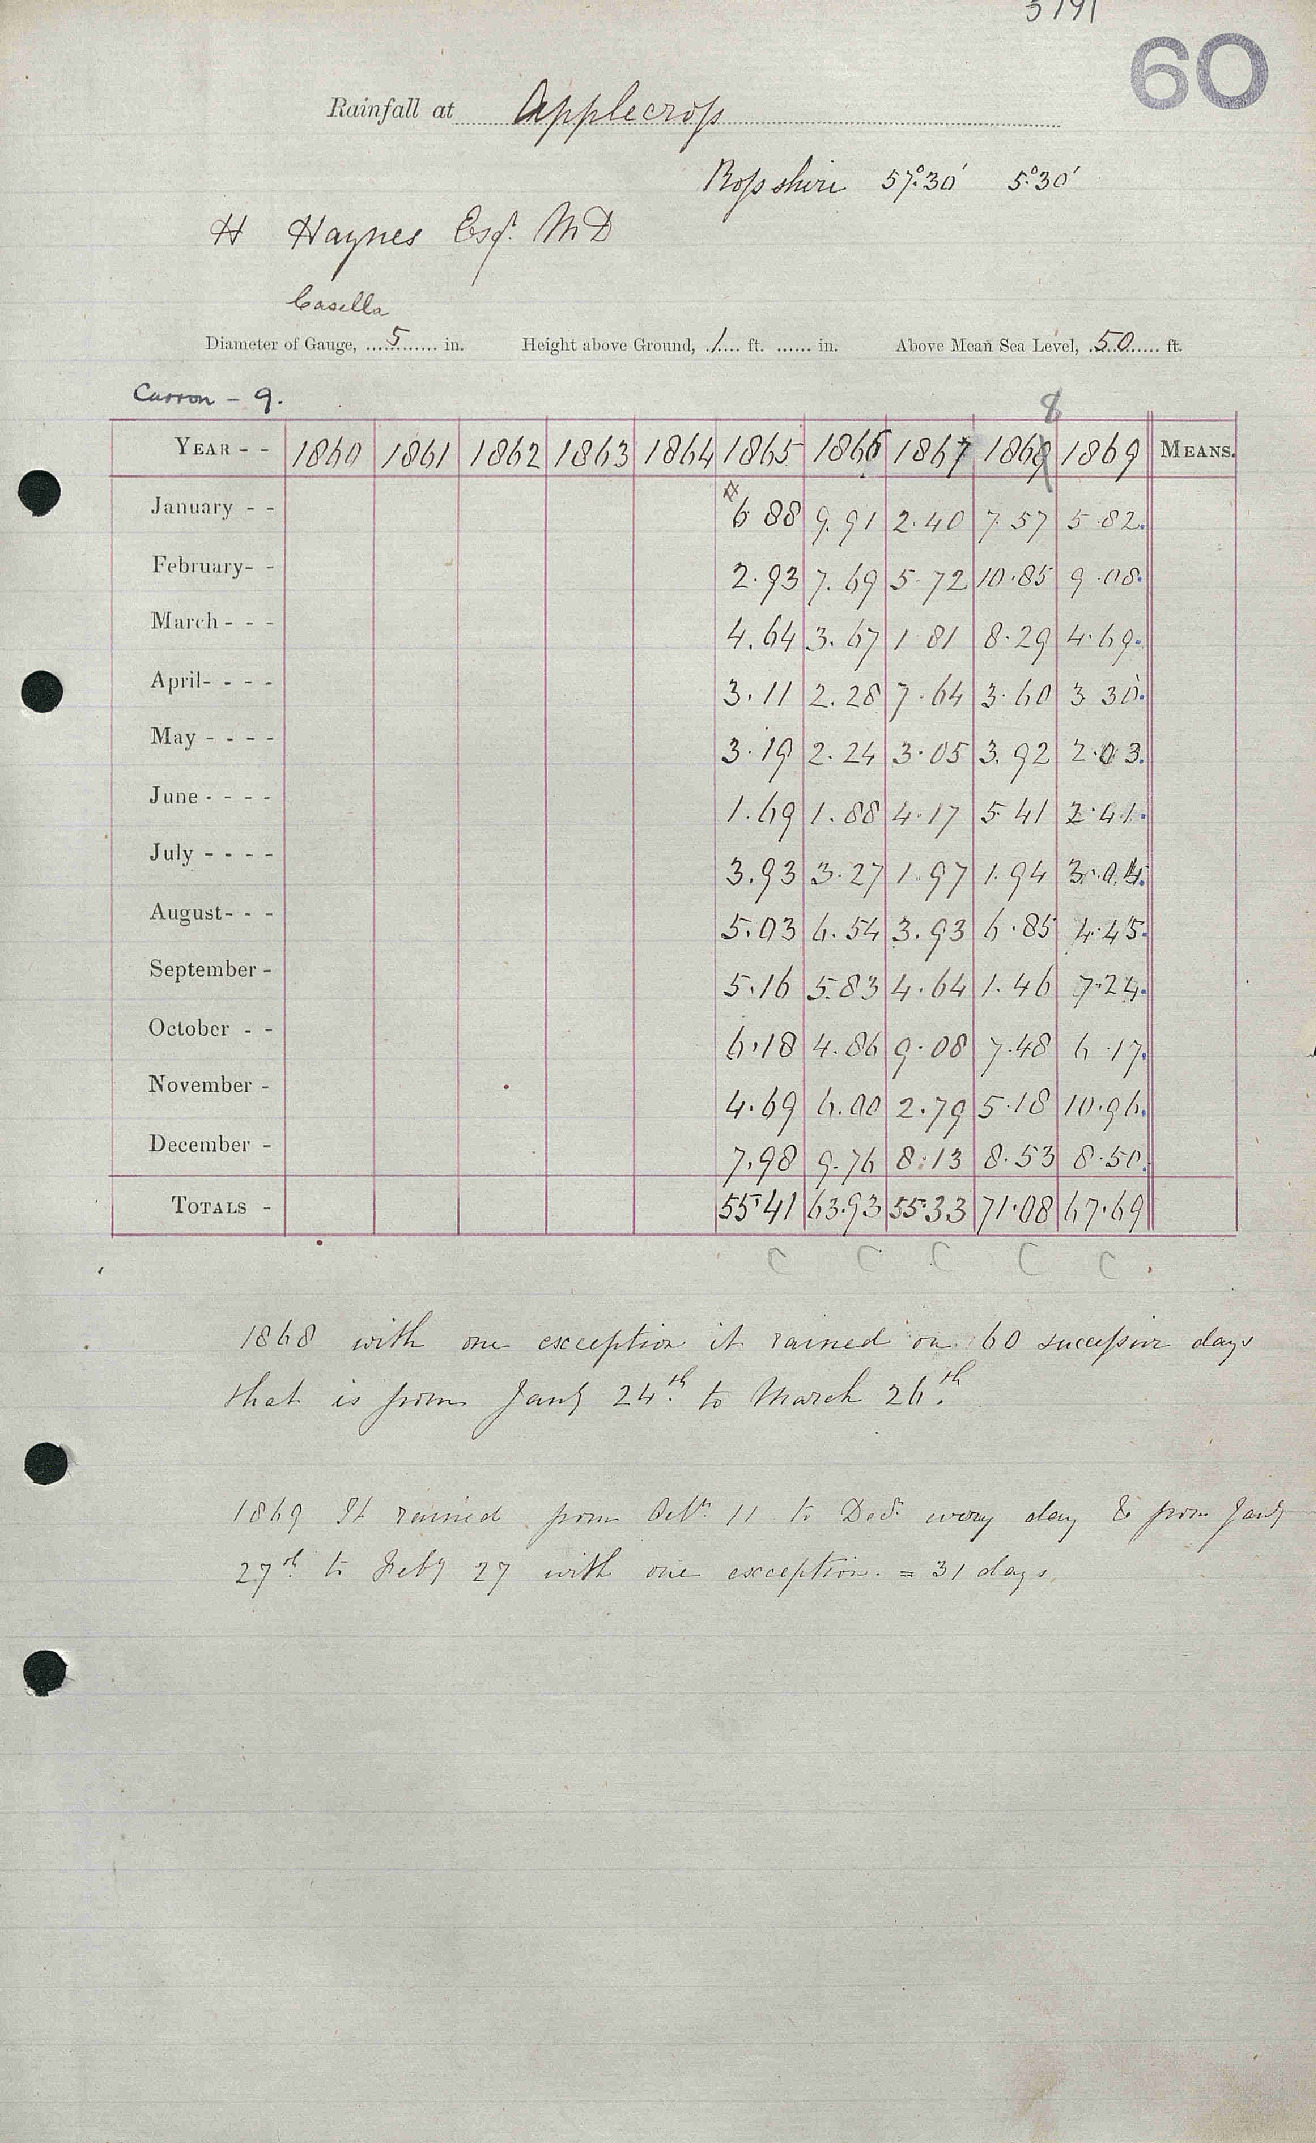 5191
60
Rainfall at Applecross
Rossshire 57°30' 5°30'
H Haynes Esqr. MD
Casella
Diameter of Gauge, 5 in. Height above Ground, 1 ft. in. Above Mean Sea Level, 50 ft.
Carron - 9.
8
YEAR - - 1860 1861 1862 1863 1864 1865 1866 1867 1869 1869 MEANS.
January - - 6 88 9.91 2.40 7.57 5.82
February - - 2.93 7.69 5.72 10.85 9.08
March - - - 4.64 3.67 1.81 8.29 4.69
April - - - - 3.11 2.28 7.64 3.60 3.30
May - - - - 3.19 2.24 3.05 3.92 2.03
June - - - - 1.69 1.88 4.17 5.41 2.41
July - - - - 3.93 3.27 1.97 1.94 3.04
August - - - 5.03 6.54 3.93 6.85 4.45
September - 5.16 5.83 4.64 1.46 7.24
October - - 6.18 4.86 9.08 7.48 6.17
November - 4.69 6.00 2.79 5.18 10.96
December - 7.98 9.76 8.13 8.53 8.50
TOTALS - 55.41 63.93 55.33 71.08 67.69
C C C C C
1868 with one exception it rained on 60 successive days
that is from Jany 24th. to March 26th.
1869 It rained from Octr. 11 to Decr. every day & from Jany
27th to Feby 27 with one exception. = 31 days.